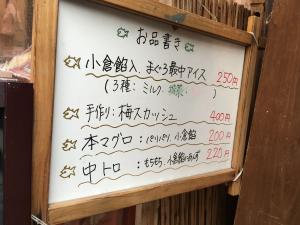 お品書き
小倉餡入 まぐろ最中アイス 250円
(3種: ミルク・抹茶・ )
手作り: 梅スカッシュ 400円
本マグロ: パリパリ、小倉餡 200円
中トロ : もちもち、小倉餡 220円